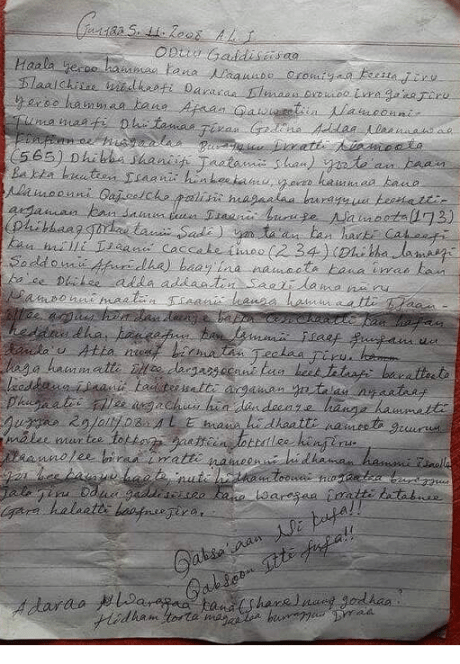 Guyyaa 5.11.2008 A.L.I
Oduu Gaddisiisaa
Haala yeroo hammaa kana Naannoo Oromiyaa keessa jiru
Ilaalchisee midhaafi Dararaa Ilmaan Oromoo irra ga'aa jiru
yeroo hammaa kana Afaan Qawweetiin Namoonni
Tumamaafi Dhiitamaa jiran Godina Addaa Naannawaa
Finfinnee magaalaa Burayyuu Irratti Namoota
(565) Dhibba shaniifi Jaatamii shan) yoo ta'an kaan
Bakka buuteen Isaanii hinbeekamu, yeroo hammaa kana
Namoonni Qajeelcha poolisii magaalaa burayyuu keessatti
argaman kan Isaanii Namoota (173)
(Dhibbaaf Torbaatamii Sadi) yoo ta'an kan harki Cabeefi
kan milli Isaanii Caccabe immoo (234) (Dhibba lamaafi
Soddomii Afuridha) baay'ina namoota kana irraa kan
ka'ee Dhibee adda addaatiin
Namoonni maatiin Isaanii hanga hammaatti
illee arguu hindandeenye bakka kan
heddandha, kanaafuu kan
Akka jechaa jiru,
haga hammatti illee dargaggoonni fi barattoota
Isaanii argaman yoo ta'an nyaataaf
Dhugaatii illee argachuu hindandeenye hanga hammatti
Guyyaa 29/01/08 A.L.E mana hidhaatti namoota guuruu
malee murtee tokkoof gaaffiin tokkollee hinjiru
Naannolee biraa irratti namoonni hidhaman hammi isaanii
yoo beekamuu baate, nuti hidhamtoonni magaalaa burayyuu
jiru Oduu gaddisiisaa kana Waraqaa irratti katabnee
Gara halaatti baafnee jira.
Qabsa'aan Ni kufa!!
Qabsoon Itti fufa!!
Adaraa Waraqaa kana (share) nuuf godhaa!
Hidhamtoota magaalaa burayyuu Irraa